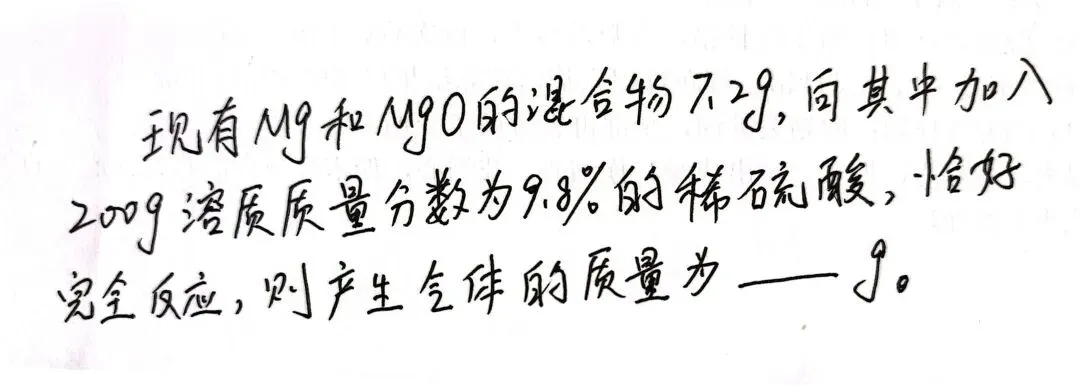 现有Mg和MgO的混合物7.2g,向其中加入
200g溶质质量分数为9.8%的稀硫酸,恰好
完全反应,则产生气体的质量为——g。